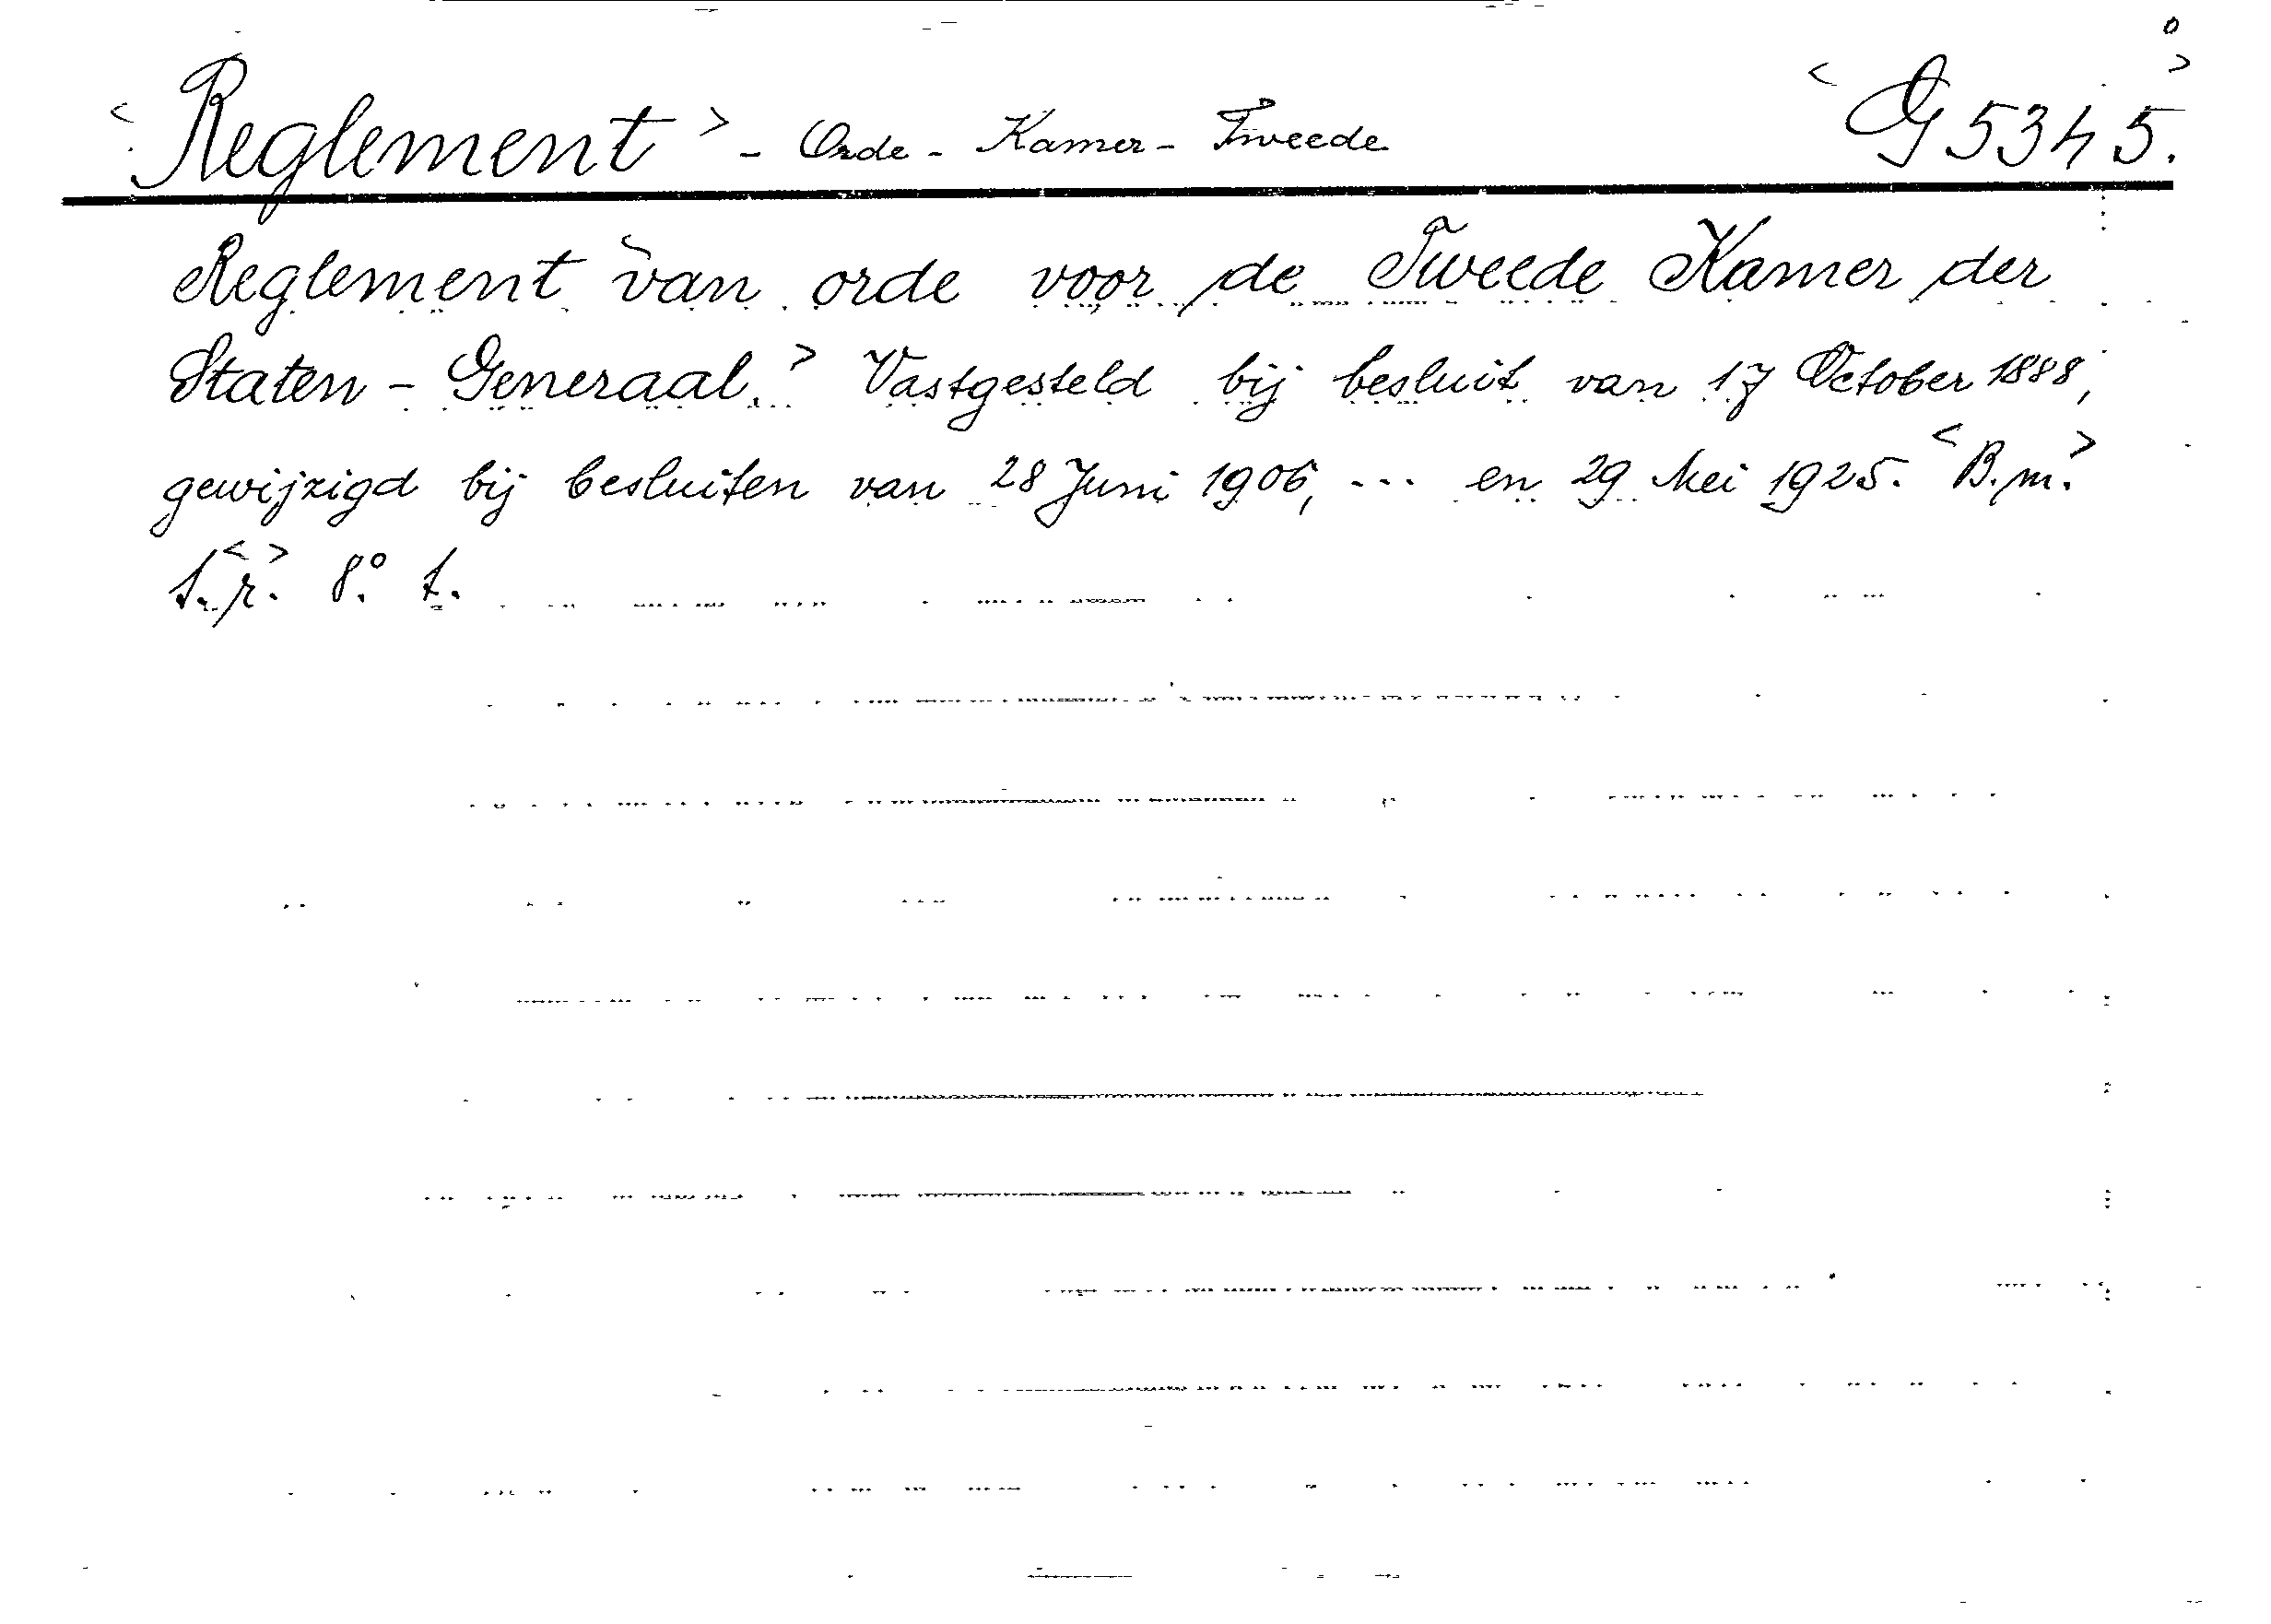 <Reglement> - Orde - Kamer - Tweede <G 5345.>
Reglement <van orde voor de Tweede Kamer der
Staten - Generaal.> Vastgesteld bij besluit van 17 October 1888,
gewijzigd bij besluiten van 28 Juni 1906, ... en 29 Mei 1925. <B.m.>
<1.r.> 8°. t.